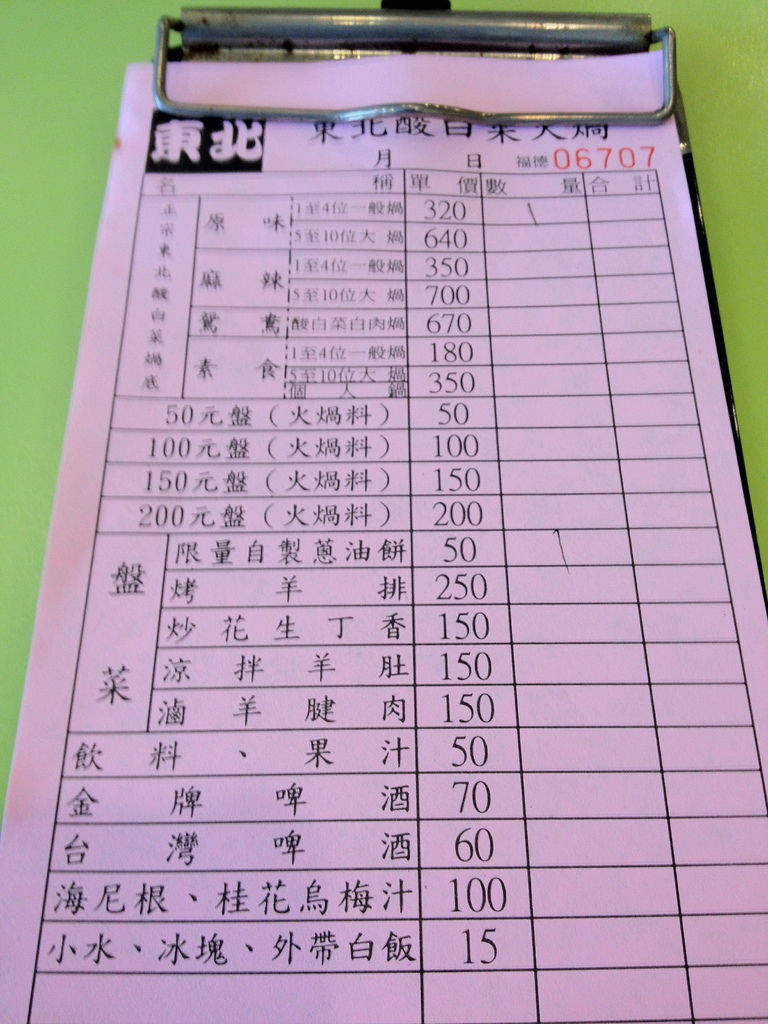 東北
東北酸白菜火鍋
月 日 福德 06707
名 稱 單 價 數 量 合 計
正宗東北酸白菜鍋底
原 味 1至4位一般鍋 320
5至10位大 鍋 640
麻 辣 1至4位一般鍋 350
5至10位大 鍋 700
鴛 鴦 酸白菜白肉鍋 670
素 食 1至4位一般鍋 180
5至10位大 鍋 350
個 人 鍋
50元盤(火鍋料) 50
100元盤(火鍋料) 100
150元盤(火鍋料) 150
200元盤(火鍋料) 200
盤 菜
限量自製蔥油餅 50
烤 羊 排 250
炒 花 生 丁 香 150
涼 拌 羊 肚 150
滷 羊 腱 肉 150
飲 料 、 果 汁 50
金 牌 啤 酒 70
台 灣 啤 酒 60
海尼根、桂花烏梅汁 100
小水、冰塊、外帶白飯 15